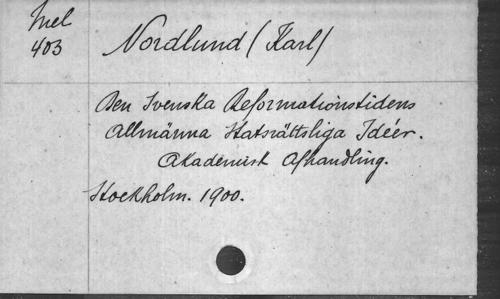 Mel
403
Nordlund (Karl)
Den Svenska Reformationstidens
Allmänna Statsrättsliga Idéer.
Akademisk Afhandling.
Stockholm. 1900.